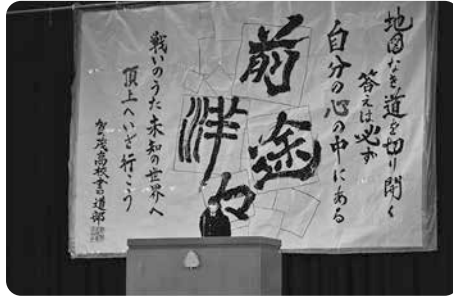 地図なき道を切り開く
答えは必ず
自分の心の中にある
前途
洋々
戦いのうた未知の世界へ
頂上へいざ行こう
賀茂高校書道部